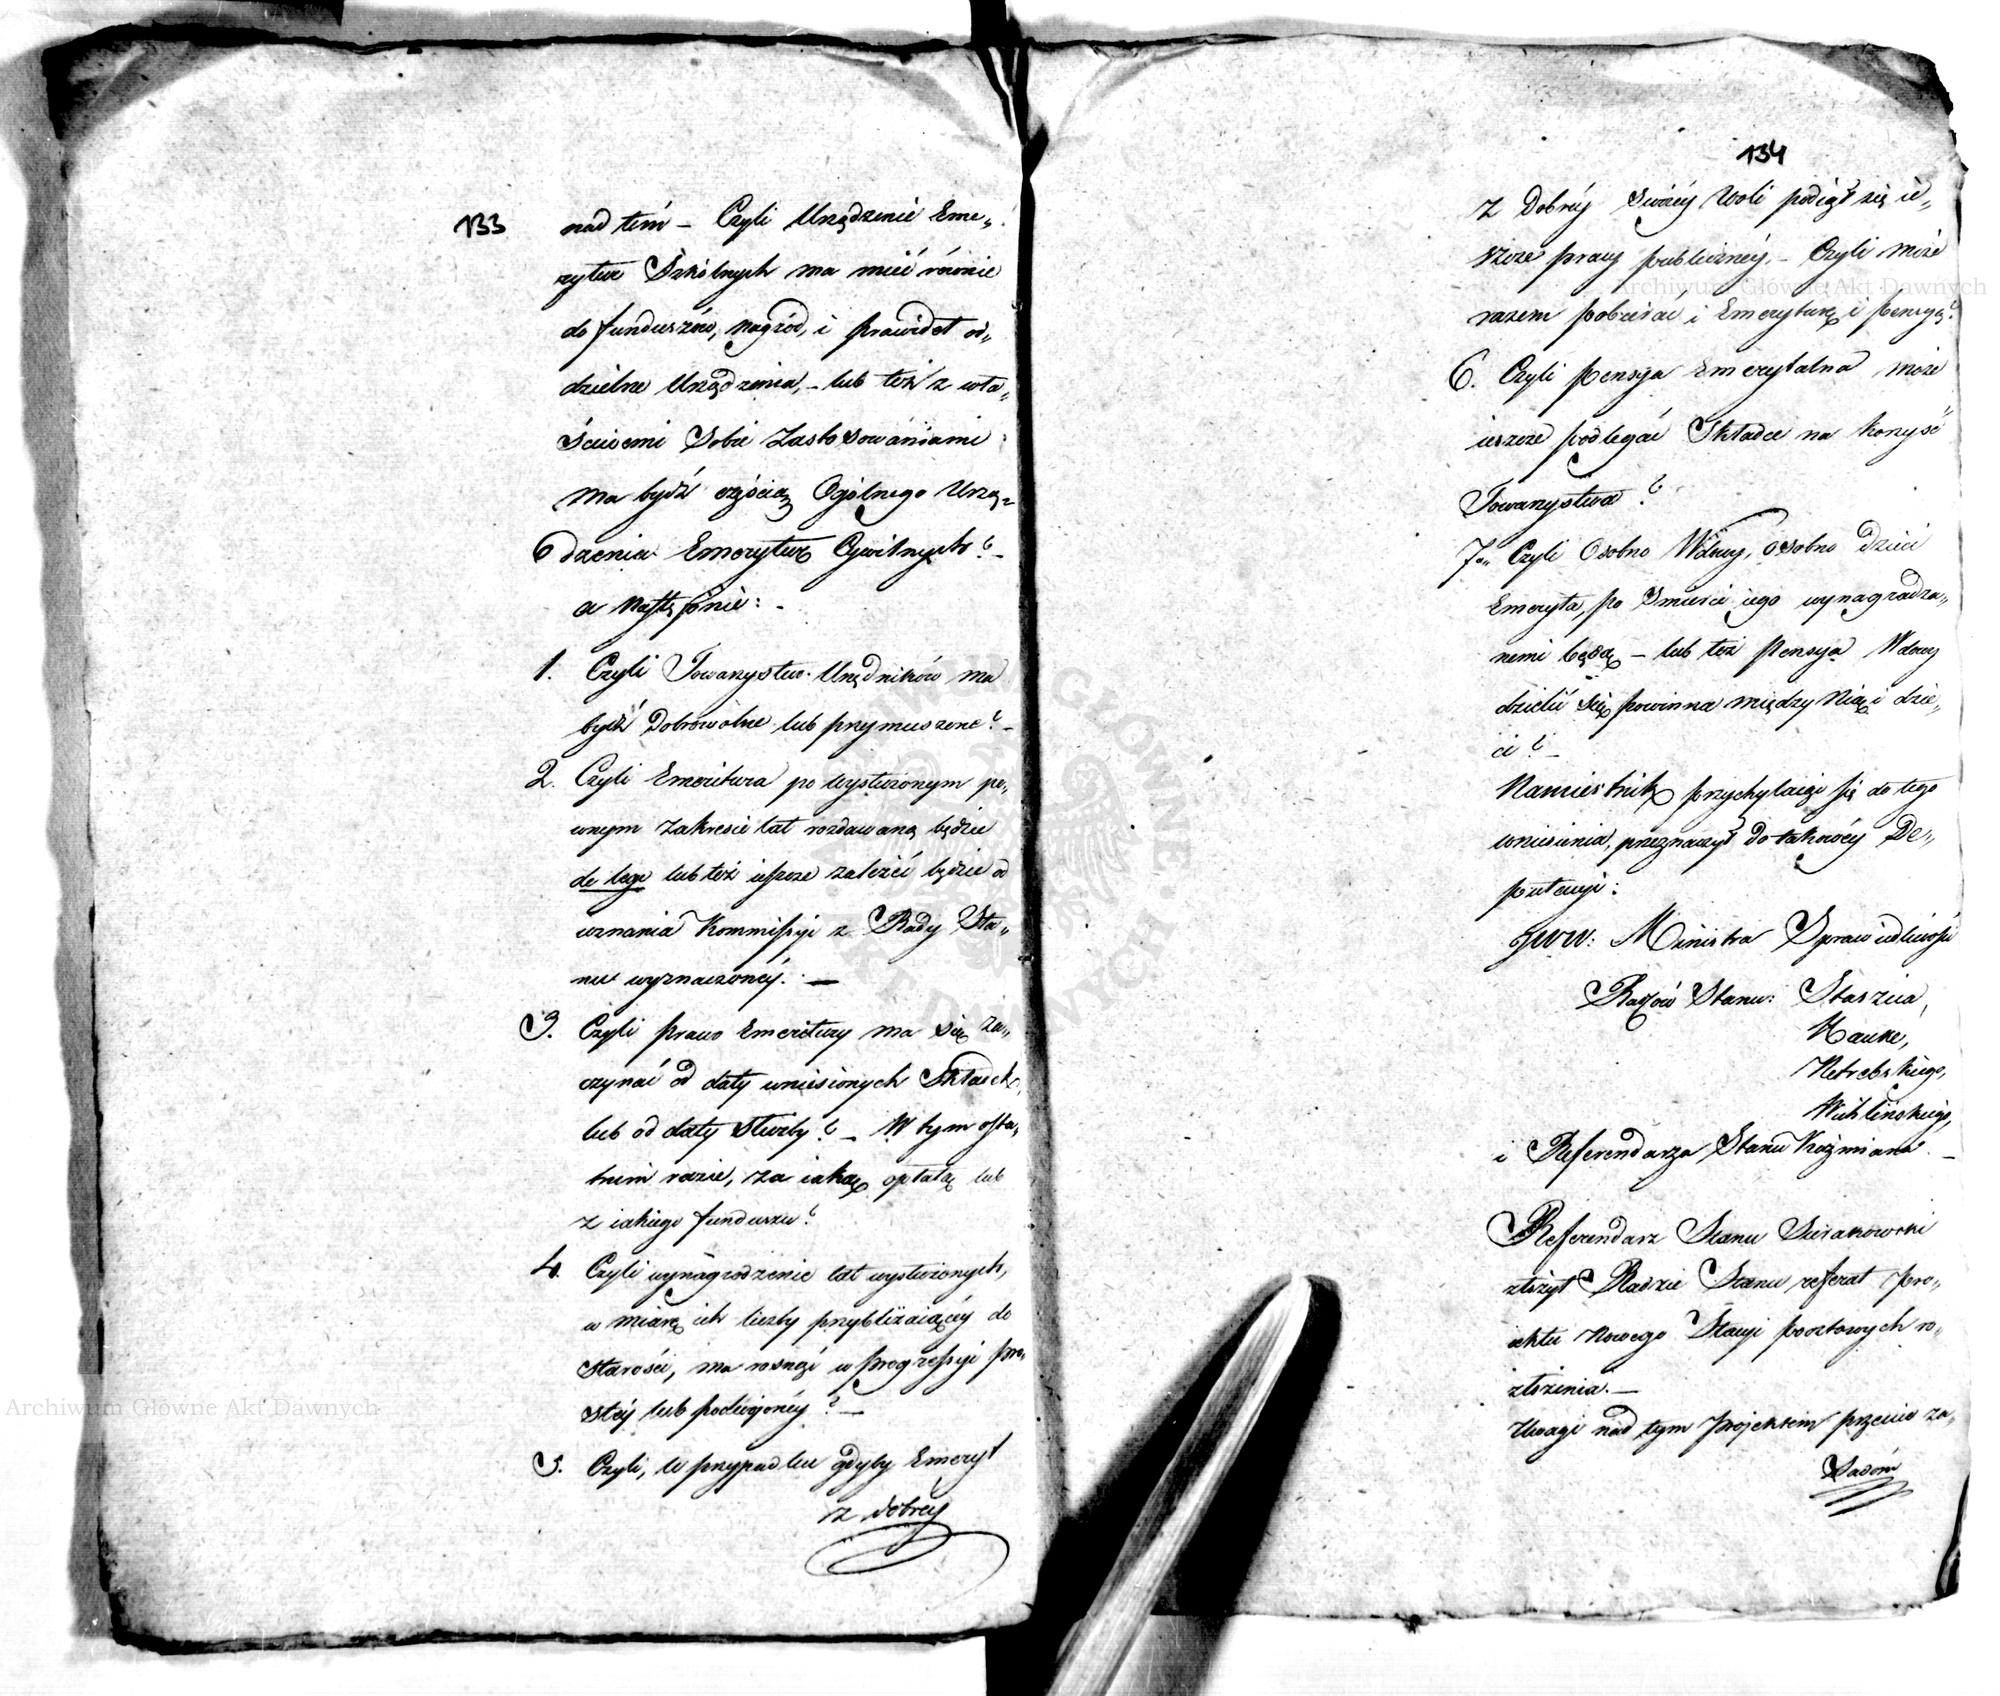 133
nad tém – Czyli Urządzenie Eme„
rytur Szkólnych ma mieć równie
do funduszów, nagród, i prawideł od„
dzielne Urządzenia, – lub też z wła„
ściwemi Sobie Zastosowaniami
ma bydź częścią Ogólnego Urzą„
dzenia Emerytur Cywilnych? –
a następnie: –
1. Czyli Towarzystwo Urzędników ma
bydź Dobrowolne lub przymuszone? –
2. Czyli Emeritura po wysłużonym pe„
wnym zakresie lat rozdawaną będzie
de lege lub też ieszcze zależeć będzie od
uznania Kommissyi z Rady Sta„
nu wyznaczonéy. –
3. Czyli prawo Emeritury ma się za„
czynać od daty wniesionych Składek,
lub od daty Służby? – W tym osta„
tnim razie, za iaką opłatą lub
z iakiego funduszu?
4. Czyli wynagrodzenie lat wysłużonych,
w miarę ich liczby przybliżaiącéy do
starości, ma rosnąć w progressyi pro„
stéy lub podwóynéy? –
5. Czyli, w przypadku gdyby Emeryt
z dobréy
134
z Dobréy Swoiéy Woli podiął się ie„
szcze pracy publicznéy, – Czyli może
razem pobierać i Emeryturę i pensyą?
6. Czyli Pensya Emerytalna może
ieszcze podlegać Składce na korzyść
Towarzystwa?
7. Czyli Osobno Wdowy, osobno Dzieci
Emeryta, po Śmierci iego wynagradza„
nemi będą – lub też Pensya Wdowy
dzielić się powinna między Nią i dzie„
ci? –
Namiestnik przychylaiąc się do tego
wniesienia, przeznaczył Do takowéy De„
putacyi:
JWW: Ministra Sprawiedliwości
Radców Stanu: Staszica,
Hauke,
Netrebskiego,
Wichlińskiego,
i Referendarza Stanu Koźmiana. –
Referendarz Stanu Sierakowski
złożył Radzie Stanu referat pro„
iektu nowego Stacyi pocztowych ro„
złożenia. –
Uwagi nad tym projektem przeciw za„
Sadom
Archiwum Główne Akt Dawnych
Archiwum Główne Akt Dawnych